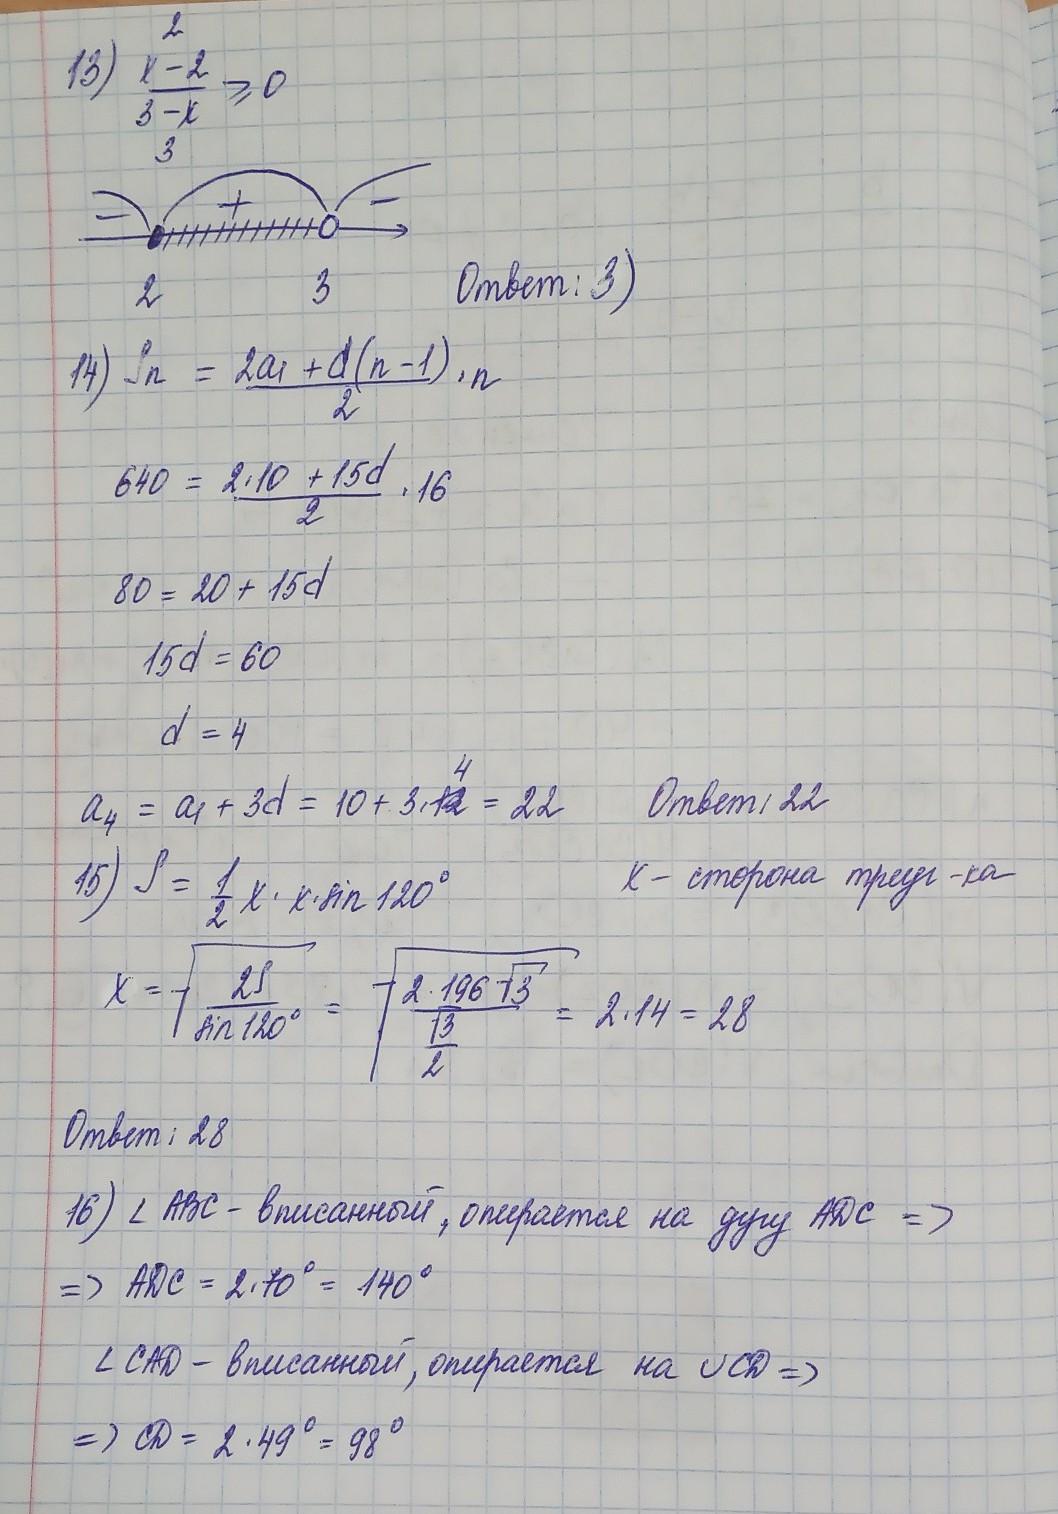 2
13) x-2
3-x ⩾ 0
3
- + -
2 3 Ответ: 3)
14) Sn = 2a1 + d(n-1) · n
2
640 = 2·10 + 15d · 16
2
80 = 20 + 15d
15d = 60
d = 4
4
a4 = a1 + 3d = 10 + 3· = 22 Ответ: 22
15) S = 1/2 x · x · sin 120° x - сторона треуг-ка
x = √(2S / sin 120°) = √(2·196√3 / (√3/2)) = 2·14 = 28
Ответ: 28
16) ∠ABC - вписанный, опирается на дугу ADC =>
=> ADC = 2·70° = 140°
∠CAD - вписанный, опирается на ∪CD =>
=> CD = 2·49° = 98°